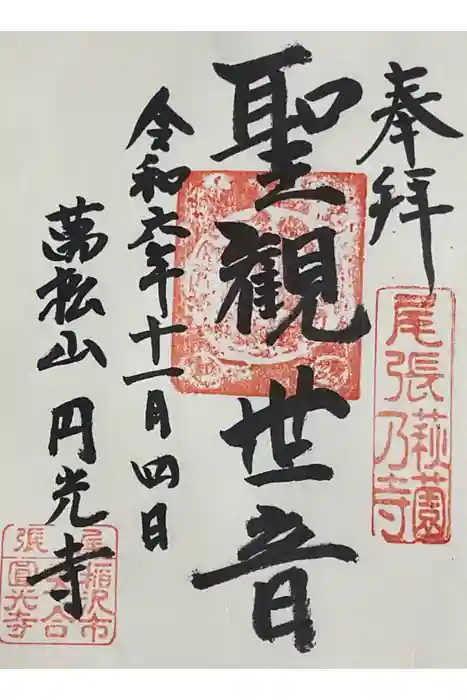 奉拝
尾張
萩園
乃寺
聖観世音
令和六年十一月四日
萬松山 円光寺
尾張
稲沢市
圓光寺